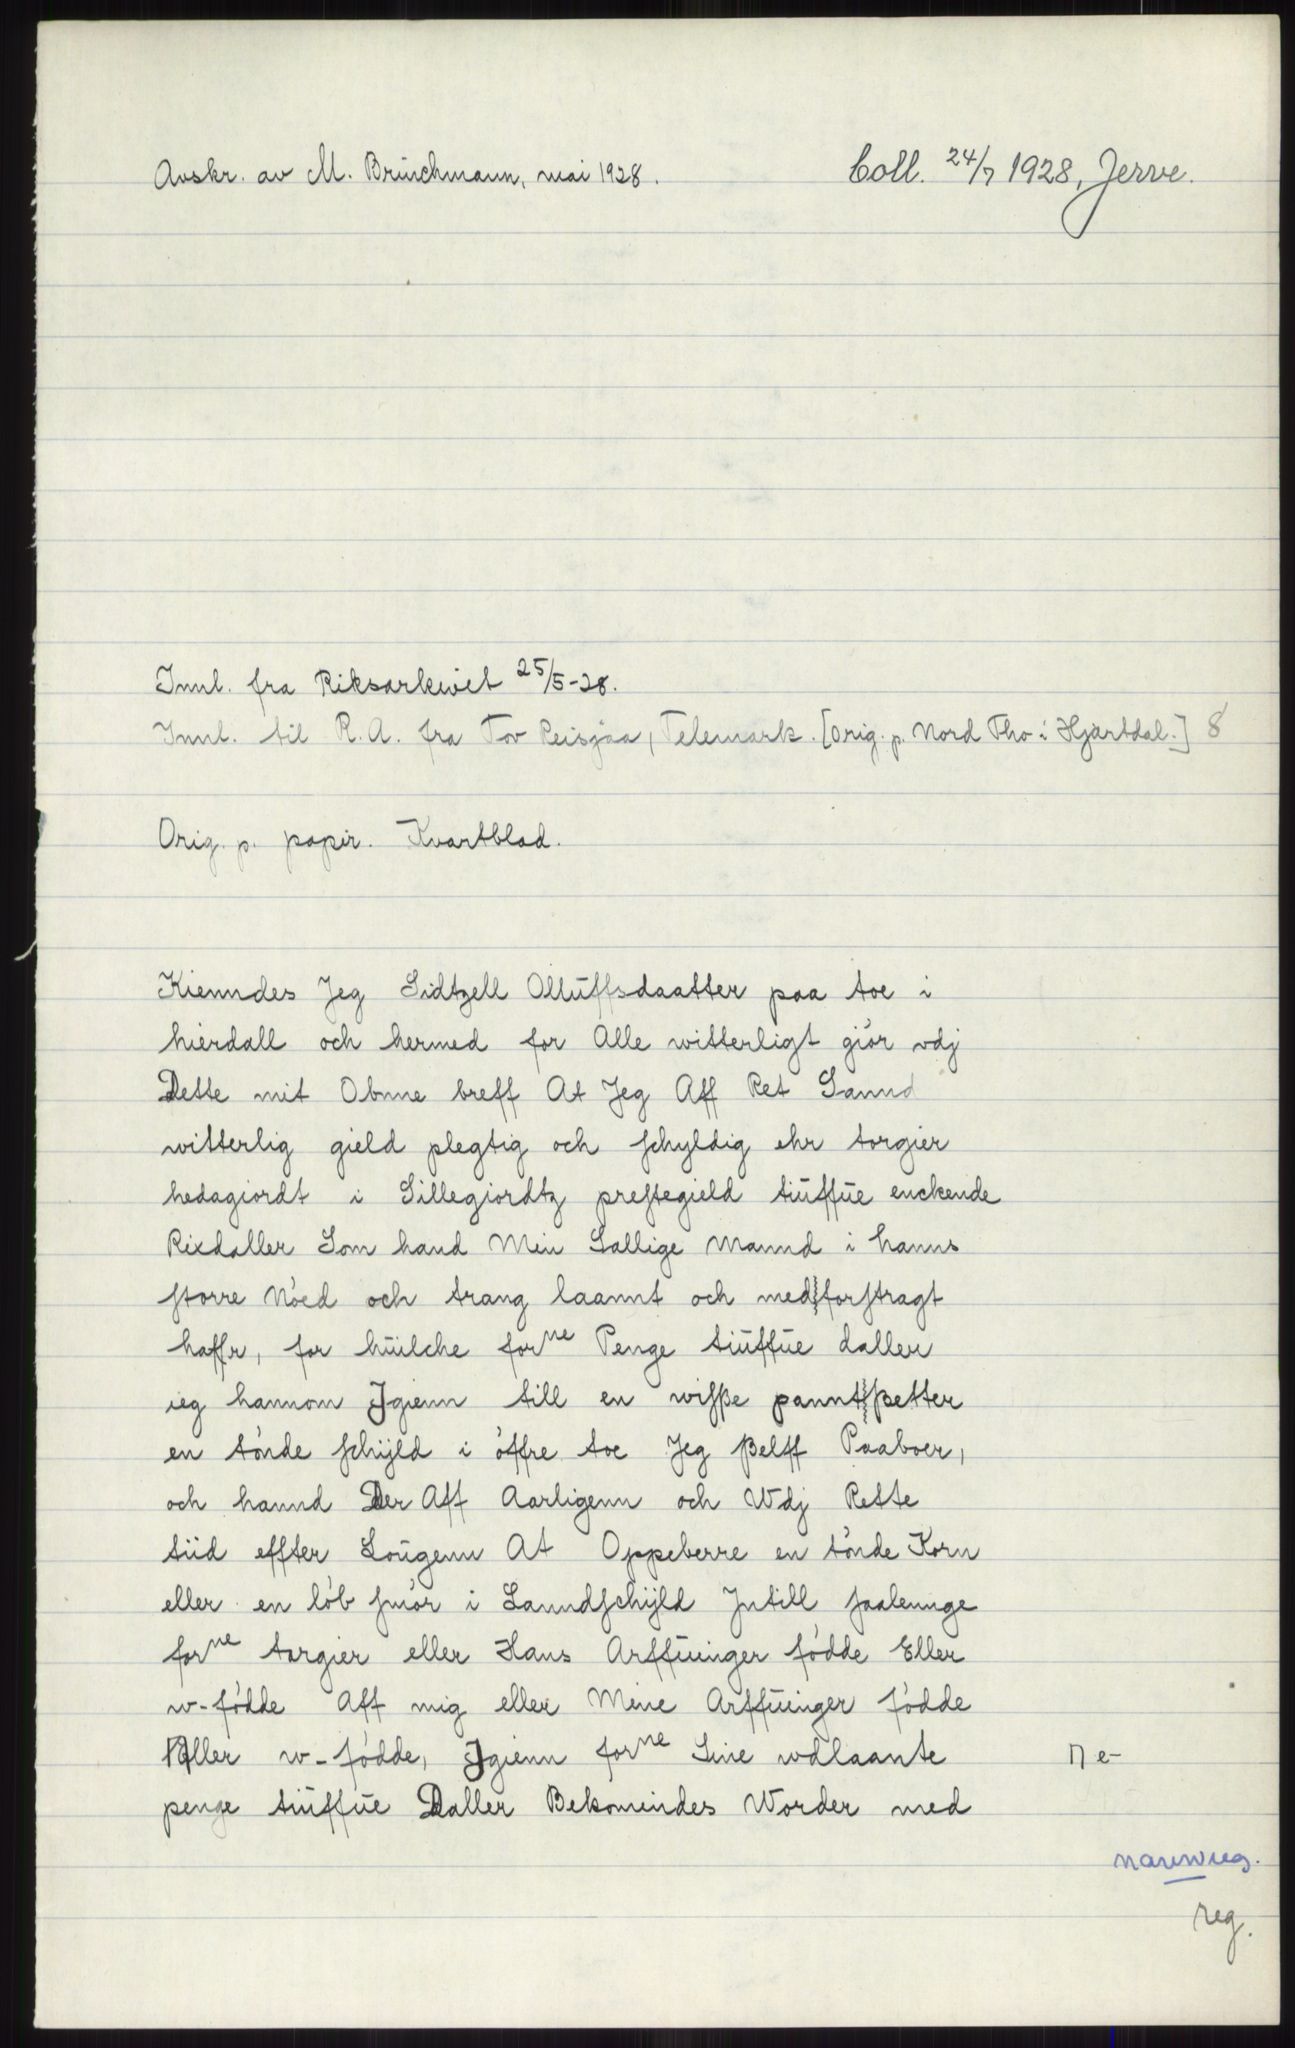 Avskr. av M. Brünchmann, mai 1928.
Coll. 24/7 1928, Jerve.
Innl. fra Riksarkivet 25/5-28.
Innl. til R.A. fra Tov Reisjaa, Telemark. [Orig. p. Nord Tho i Hjartdal.] 8
Orig. p. papir. Kvartblad.
Kienndes Jeg Sidtzell Olluffsdaatter paa toe i
hierdall och hermed for Alle witterligt giör vdj
Dette mit Obne breff At Jeg Aff Ret Sannd
witterlig gield plegtig och schyldig ehr torgier
hedagiordt i Sillegiordtz prestegield tiuffue enckende
Rixdaller Som hand Min Sallige Mannd i hanns
storre Nöed och trang laannt och med forstragt
haffr, for huilche forne Penge tiuffue daller
ieg hannom Igienn till en wisse pannt setter
en tönde schijld i öffre toe Jeg selff Paaboer,
och hannd Der Aff Aarligenn och Wdj Rette
tiid effter Lougenn At Oppeberre en tönde Korn
eller en löb smör i Lanndschijld Intill saalennge
forne torgier eller Hans Arffuinger födde Eller
w-födde Aff mig eller Mine Arffuinger födde
Eller w-födde, Igienn forne Sine wdlaante
penge tiuffue Daller Bekomindes Worder med
reg.